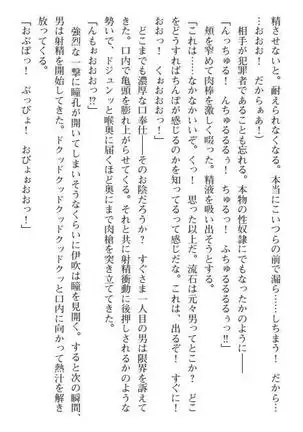 精させないと、耐えられなくなる。本当にこいつらの前で漏……しちまう！　だから……
…おおお！　だからぁぁ！）
　相手が犯罪者であることも忘れる。本物の性奴隷にでもなったかのように──
「んっちゅる！　んちゅるるるぅ！　ちゅるっ！　ふちゅるるるるぅっ‼」
　頬を窄めて肉棒を激しく啜った。精液を吸い出そうとする。
「これは……なかなかいいぞ。くっ！　思った以上だ。流石は元々男ってとこか？　どこ
をどうすればちんぽが感じるのかを知ってるって感じだな。これは、出るぞ！　すぐに！
おおお！　くおおおおっ！」
　どこまでも濃厚な口奉仕──そのお陰だろうか？　すぐさま一人目の男は限界を訴えて
きた。口内で亀頭を膨れ上がらせてくる。それと共に射精衝動に後押しされるかのような
勢いで、ドジュンッと喉奥に届くほど奥にまで肉槍を突き立ててきた。
「んもぉおおおっ⁉」
　強烈な一撃に瞳孔が開いてしまいそうなくらいに伊吹は瞳を見開く。すると次の瞬間、
男は射精を開始してきた。ドクッドクッドクッドクッと口内に向かって熱汁を解き
放ってくる。
「おぶぼっ！　ぶっぴょ！　おびょぉおおおっ！」